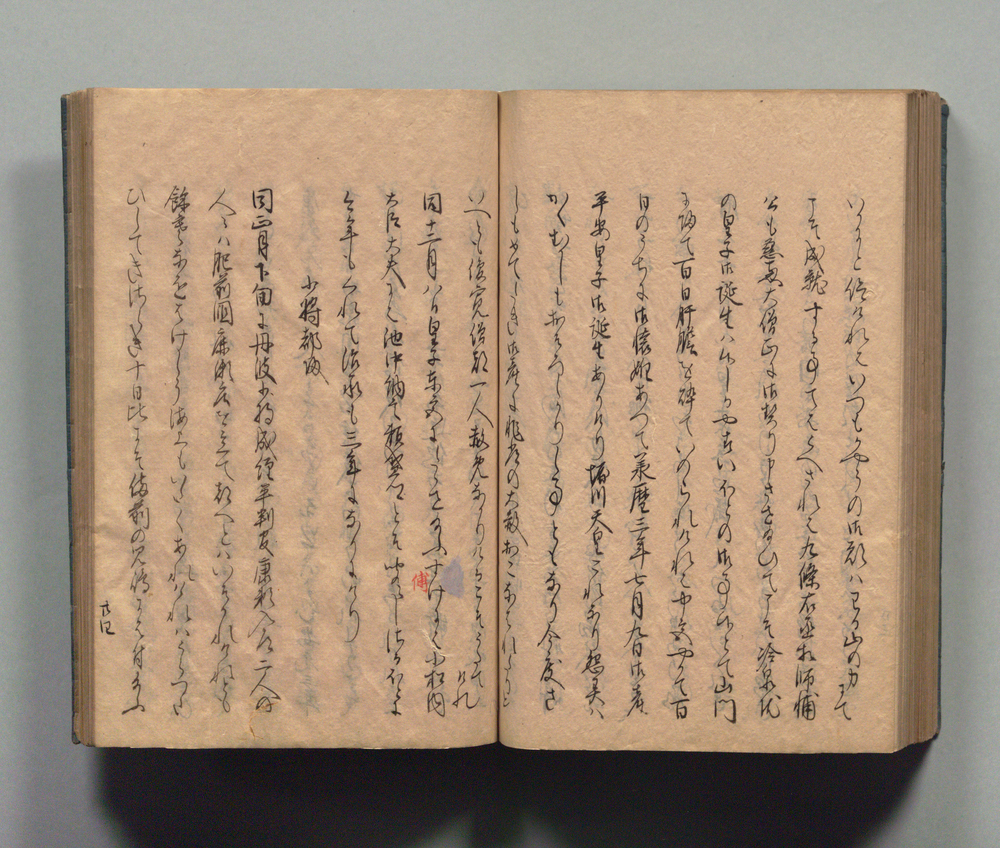 いかにと仰けれはいつもかやうの御願ハわか山の力にて
こそ成就する事てさふらへされは九條右丞相師輔
公も慈恵大僧正に御契り申させ給ひてこそ冷泉院
の皇子御誕生ハ候しかやすいほとの御事候とて山門
に帰て百日肝膽を砕ていのられけれは中宮やかて百
日のうちに御懐妊あつて承暦三年七月九日御産
平安皇子御誕生ありけり堀川天皇これなり怨霊ハ
かくむかしもおそろしかりし事ともなり今度さ
しもめてたき御産に非常の大赦おこなハれたりと
いへとも俊寛僧都一人赦免なかりけるこそうたてけれ
同十二月八日皇子東宮にたゝせ給ふすけにハ小松内
傅
大臣大夫にハ池中納言頼盛卿とそ聞えしさるほとに
今年もくれて治承も三年になりにけり
少将都帰
同正月下旬に丹波少将成經平判官康頼入道二人の
人々ハ肥前國鹿瀬庄をたつて都へとハいそかれけれとも
餘寒なをはけしう海上もいたくあれけれハうらつた
ひしてきさらき十日比にそ備前の児嶋にハ付給ふ